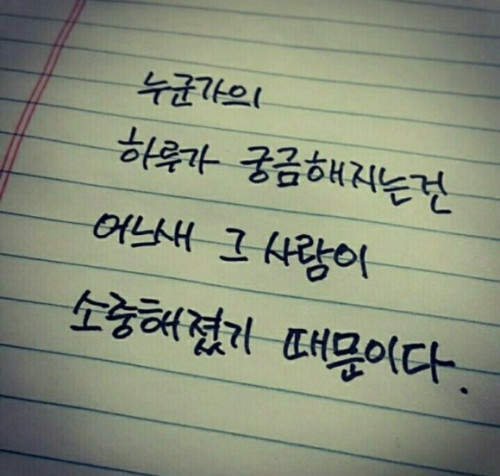 누군가의
하루가 궁금해지는건
어느새 그 사람이
소중해졌기 때문이다.